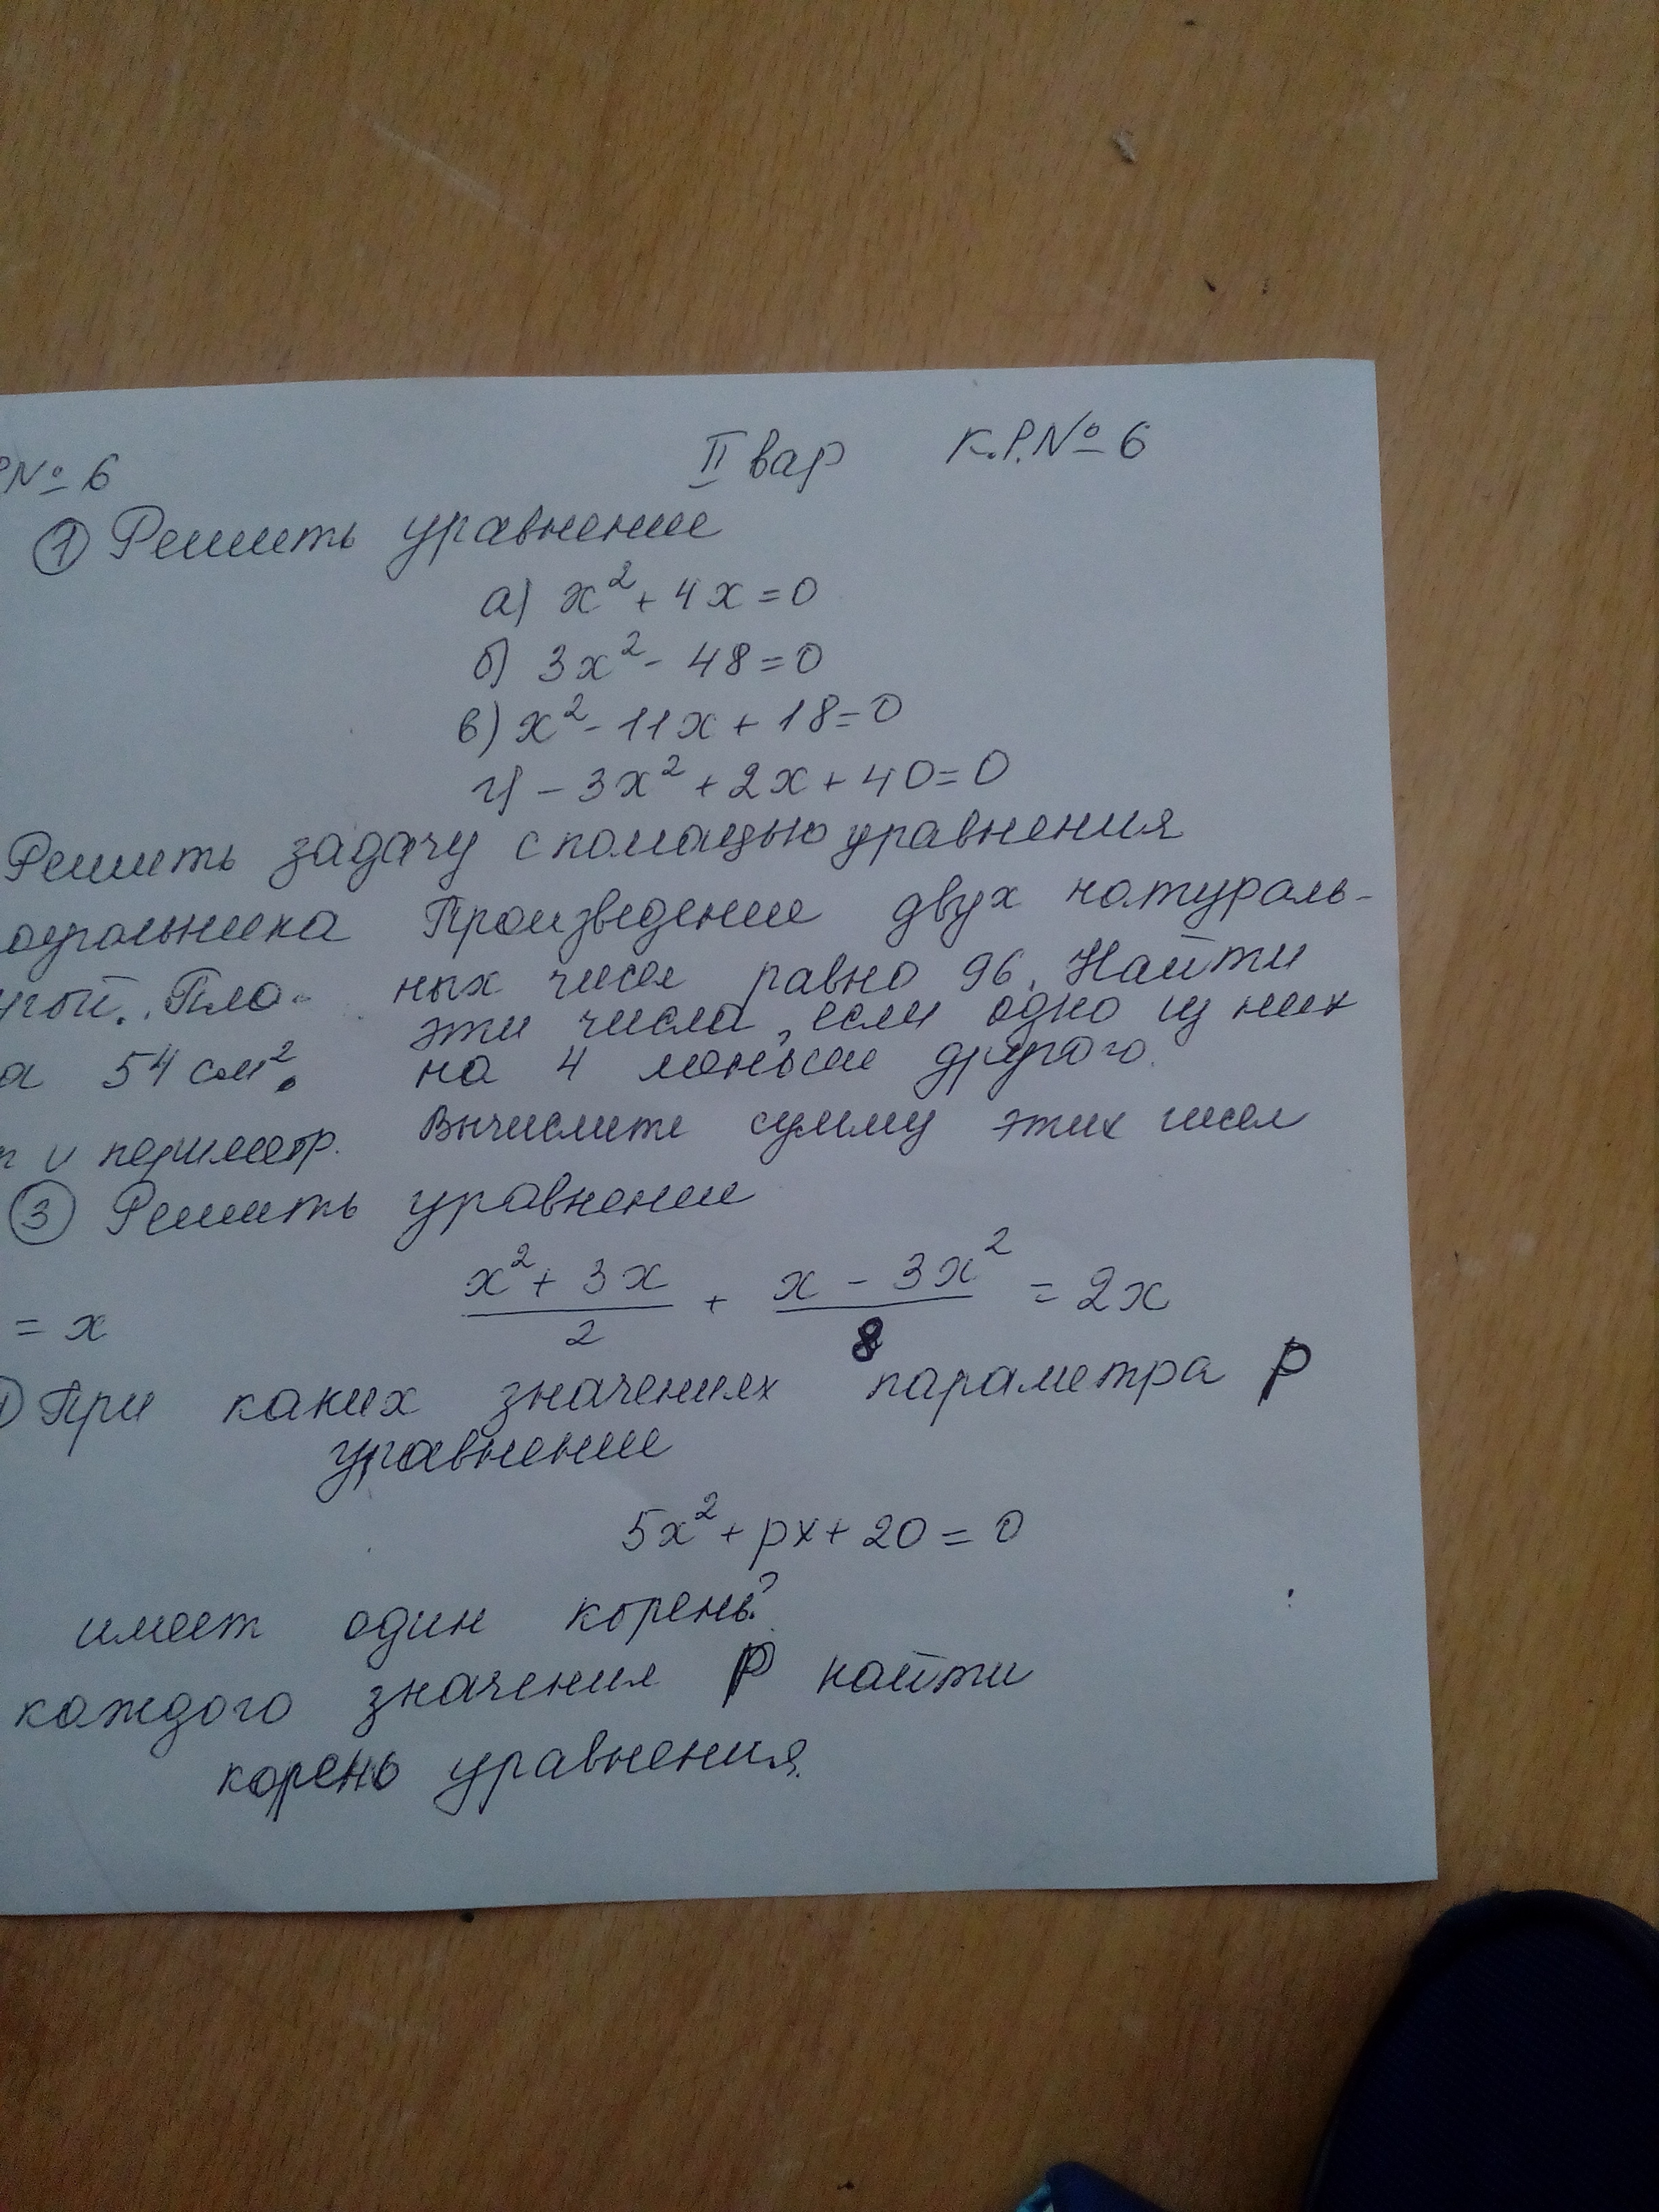 № 6 II вар К.Р.№ 6
1 Решить уравнение
а) x² + 4x = 0
б) 3x² - 48 = 0
в) x² - 11x + 18 = 0
г) - 3x² + 2x + 40 = 0
Решить задачу с помощью уравнения
оугольника Произведение двух натураль-
угой. Пло- ных чисел равно 96. Найти
эти числа, если одно из них
а 54 см². на 4 меньше другого.
и периметр. Вычислите сумму этих чисел
3 Решить уравнение
= x (x² + 3x)/2 + (x - 3x²)/8 = 2x
При каких значениях параметра p
уравнение
5x² + px + 20 = 0
имеет один корень?
каждого значения p найти
корень уравнения.